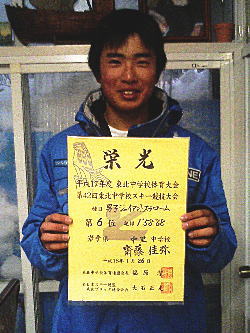 栄光
平成17年度 東北中学校体育大会
第42回東北中学校スキー競技大会
種目 男子ジャイアントスラローム
第6位 記録 1'58"68
岩手県 中里 中学校
齊藤佳弥
平成18年1月26日